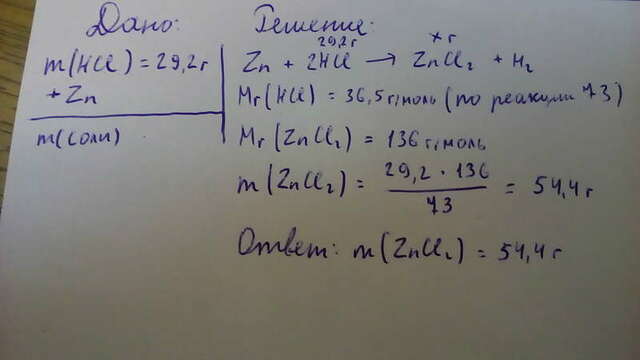 Дано:
m(HCl) = 29,2 г
+ Zn
m(соли)
Решение:
29,2 г x г
Zn + 2HCl → ZnCl₂ + H₂
Mr(HCl) = 36,5 г/моль (по реакции 73)
Mr(ZnCl₂) = 136 г/моль
m(ZnCl₂) = 29,2 · 136 / 73 = 54,4 г
Ответ: m(ZnCl₂) = 54,4 г